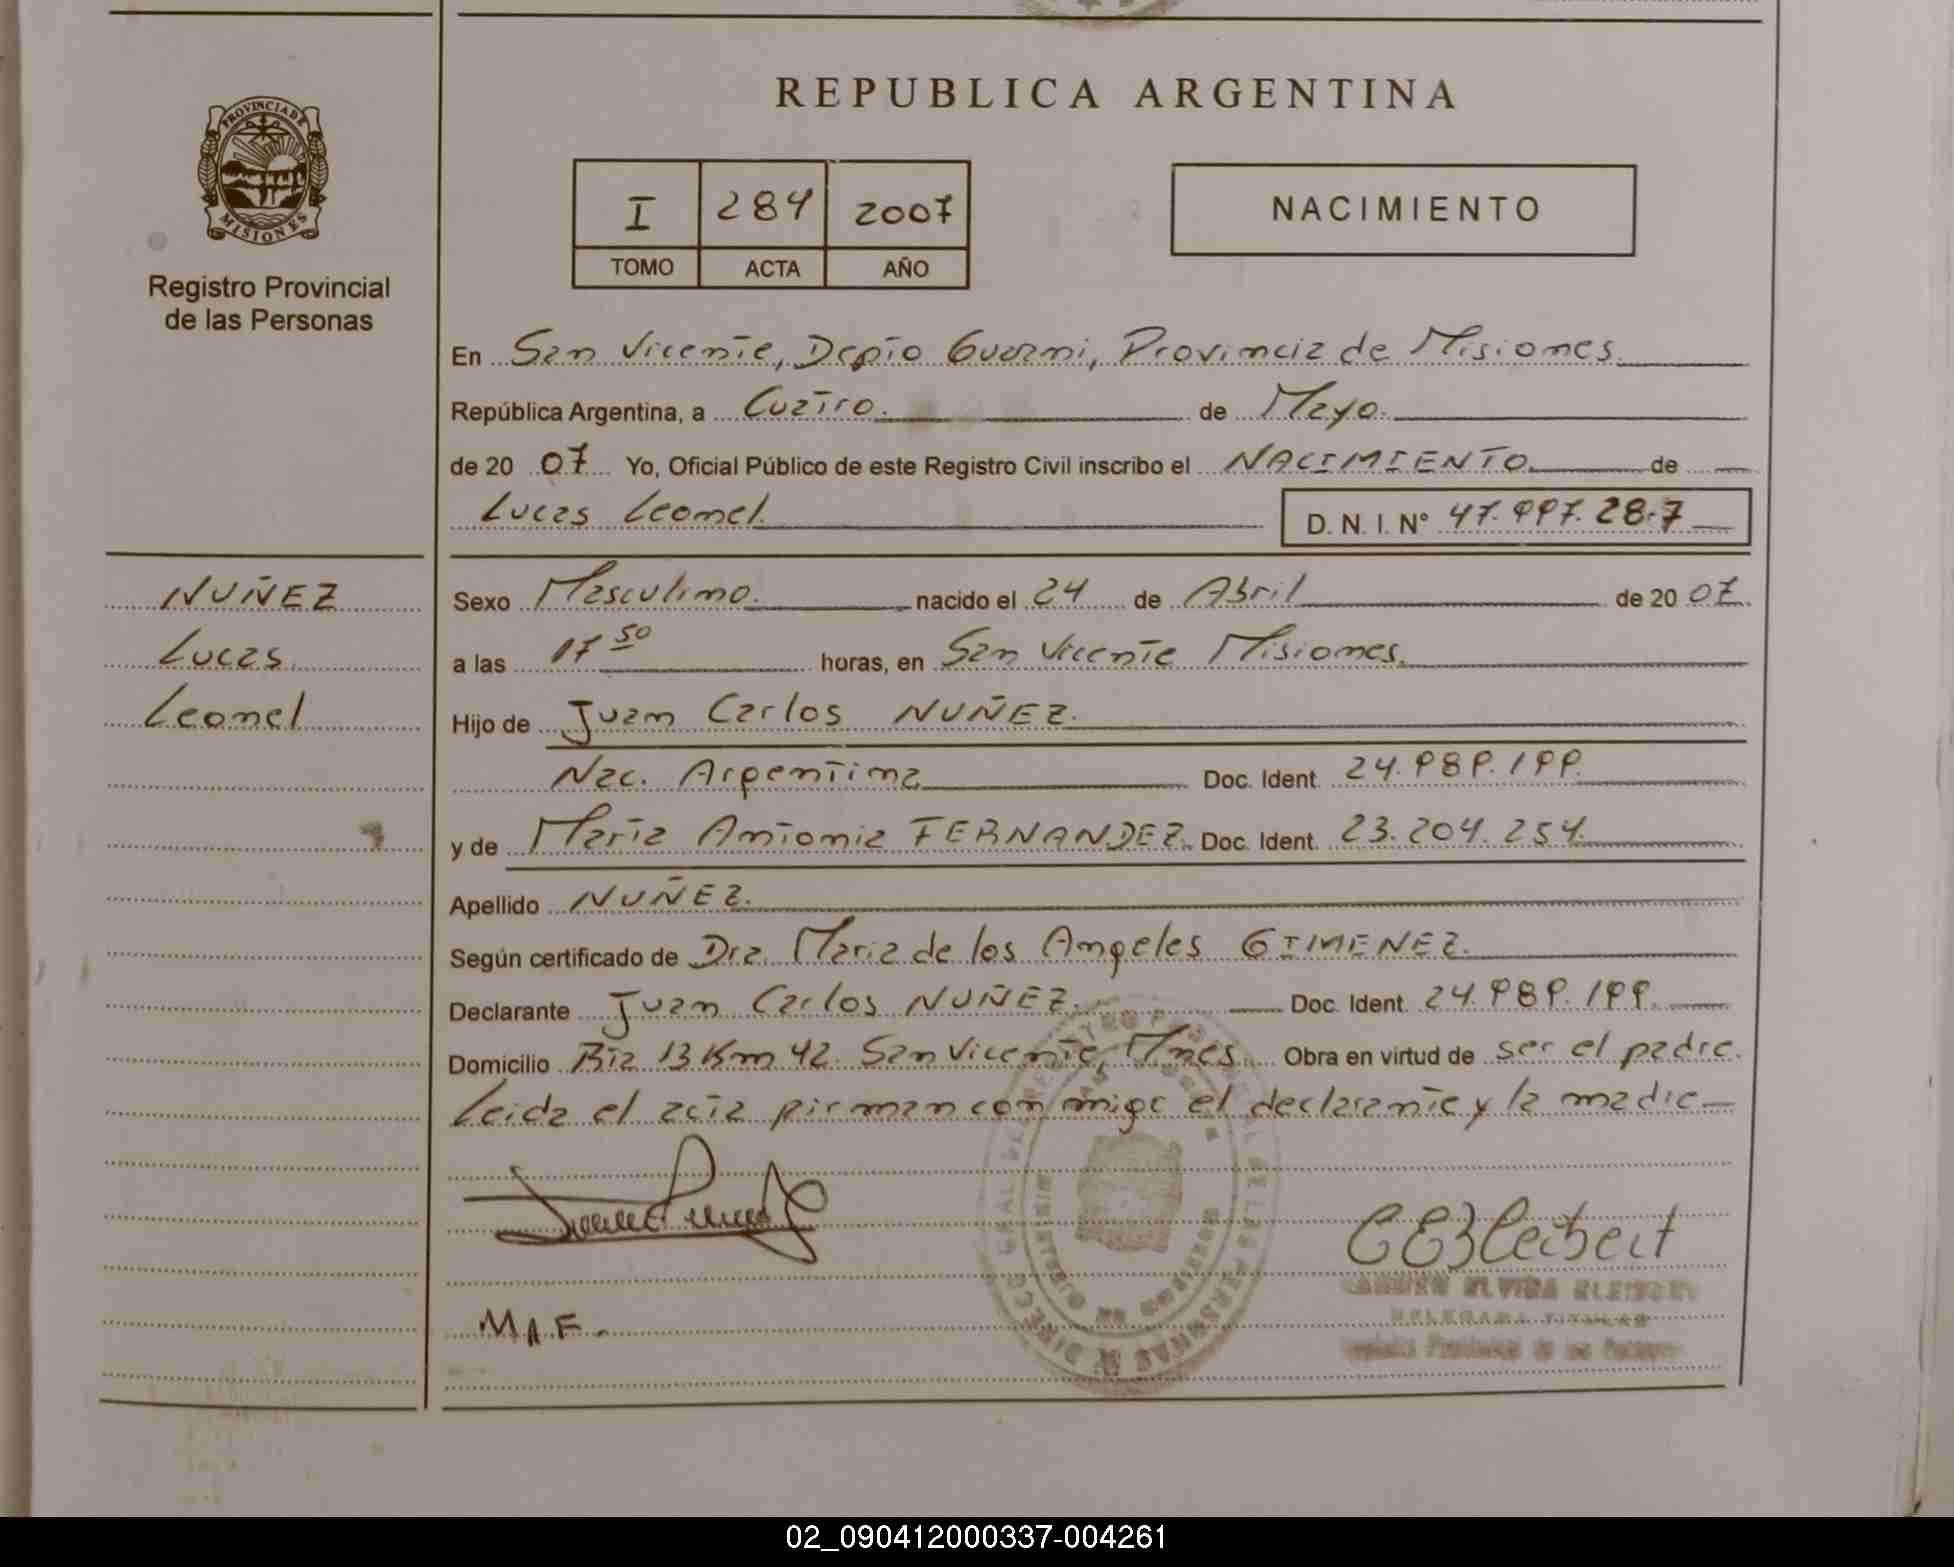 REPUBLICA ARGENTINA
PROVINCIA DE
MISIONES
Registro Provincial
de las Personas
I 284 2007
TOMO ACTA AÑO
NACIMIENTO
En San Vicente, Depto Guarni, Provincia de Misiones
República Argentina, a Cuatro. de Mayo.
de 20 07 Yo, Oficial Público de este Registro Civil inscribo el NACIMIENTO de
Lucas Leonel. D. N. I. N° 47.997.287
NUÑEZ
Lucas
Leonel
Sexo Masculino. nacido el 24 de Abril de 20 07
a las 17 50 horas, en San Vicente Misiones.
Hijo de Juan Carlos NUÑEZ.
Nac. Argentina Doc. Ident. 24.989.199.
y de María Antonia FERNANDEZ. Doc. Ident. 23.204.254.
Apellido NUÑEZ.
Según certificado de Dra. Maria de los Angeles GIMENEZ.
Declarante Juan Carlos NUÑEZ. Doc. Ident. 24.989.199.
Domicilio Rta 13 Km 42. San Vicente, Mnes. Obra en virtud de ser el padre.
Leida el acta firman conmigo el declarante y la madre
M A F.
DELEGADA TITULAR
02_090412000337-004261